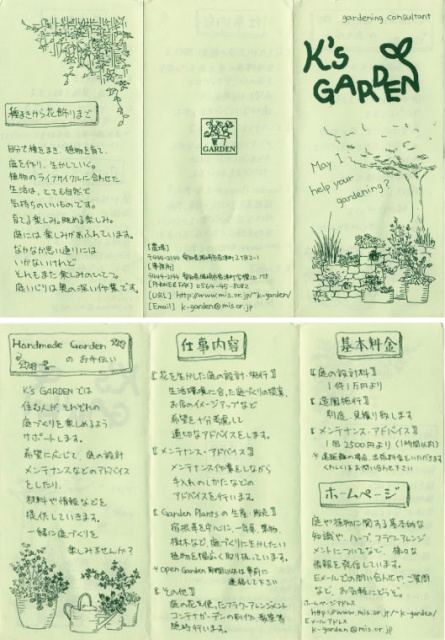 種まきから花飾りまで
自分で種をまき、植物を育て、
庭を作り、生かしていく。
植物のライフサイクルに合わせた
生活は、とても自然で
気持ちのいいものです。
育てる楽しみ。眺める楽しみ。
庭には楽しみがあふれています。
なかなか思い通りには
いかないけれど
それもまた楽しみの一つ。
庭いじりは奥の深い作業です。
GARDEN
[農場]
[事務所]
[PHONE&FAX] 0564-45-8082
[URL] http://www.mis.or.jp/~k-garden/
[Email] k-garden@mis.or.jp
gardening consultant
K's
GARDEN
May I
help your
gardening?
Handmade Garden
のお手伝い
K's GARDENでは
住む人が、それぞれの
庭づくりを楽しめるよう
サポートします。
希望に応じて、庭の設計
メンテナンスなどのアドバイス
をしたり、
材料や情報などを
提供していきます。
一緒に庭づくりを
楽しみませんか?
仕事内容
【花を生かした庭の設計・施行】
生活環境に合った庭づくりの提案、
お店のイメージアップなど
希望を十分考慮して
適切なアドバイスをします。
【メンテナンス・アドバイス】
メンテナンス作業をしながら
手入れのしかたなどの
アドバイスを行います。
【Garden Plantsの生産・販売】
宿根草を中心に、一年草、果物、
樹木など、庭づくりに生かしたい
植物を幅広く取り扱っています。
連絡して下さい
【その他】
庭の花を使ったフラワーアレンジメント
随時行います。
基本料金
【庭の設計料】
1件1万円より
【造園施行】
別途、見積り致します
【メンテナンス・アドバイス】
1回2500円より(1時間以内)
くわしくはお問い合わせ下さい
ホームページ
庭や植物に関する基本的な
知識や、ハーブ、フラワーアレンジ
メントについてなど、様々な
情報を発信しています。
Eメールでの問い合わせやご質問
など、お気軽にどうぞ。
ホームページアドレス
http://www.mis.or.jp/~k-garden/
Eメールアドレス
k-garden@mis.or.jp